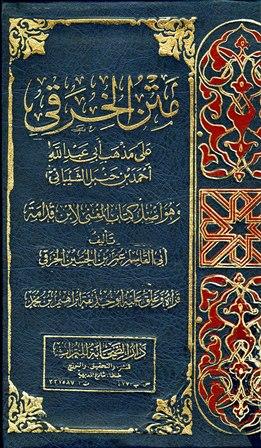 متن الخرقي
على مذهب أبي عبد الله
أحمد بن حنبل الشيباني
وهو أصل كتاب المغني لابن قدامة
تأليف
أبي القاسم عمر بن الحسين الخرقي
قرأه وعلق عليه أبو حذيفة إبراهيم بن محمد
دار الصحابة للتراث
للنشر والتحقيق والتوزيع